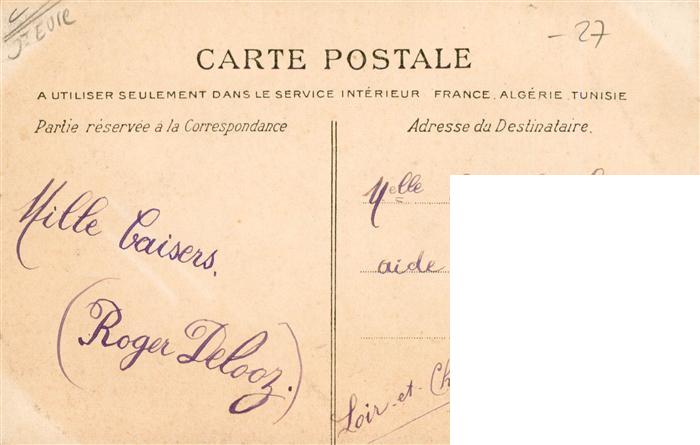 St EVIE
- 27
CARTE POSTALE
A UTILISER SEULEMENT DANS LE SERVICE INTÉRIEUR FRANCE, ALGÉRIE, TUNISIE
Partie réservée à la Correspondance
Adresse du Destinataire.
Mille baisers.
(Roger Delooz.)
Melle
aide
Loir-et-Ch